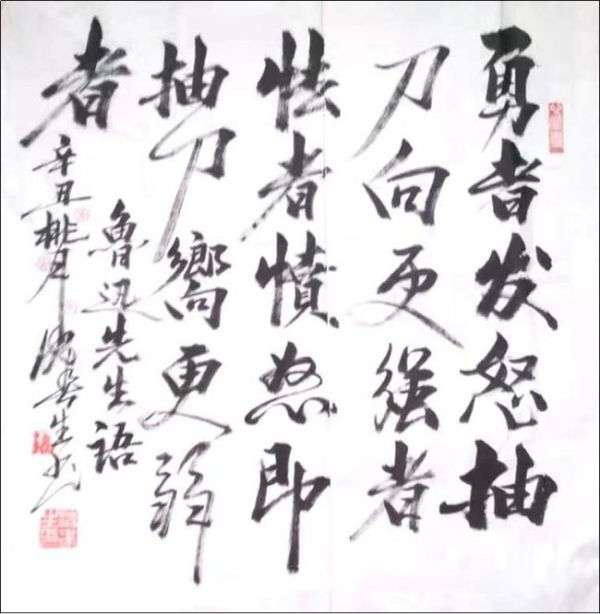 勇者发怒抽
刀向更强者
怯者愤怒即
抽刀嚮更弱
者
魯迅先生語
辛丑桃月